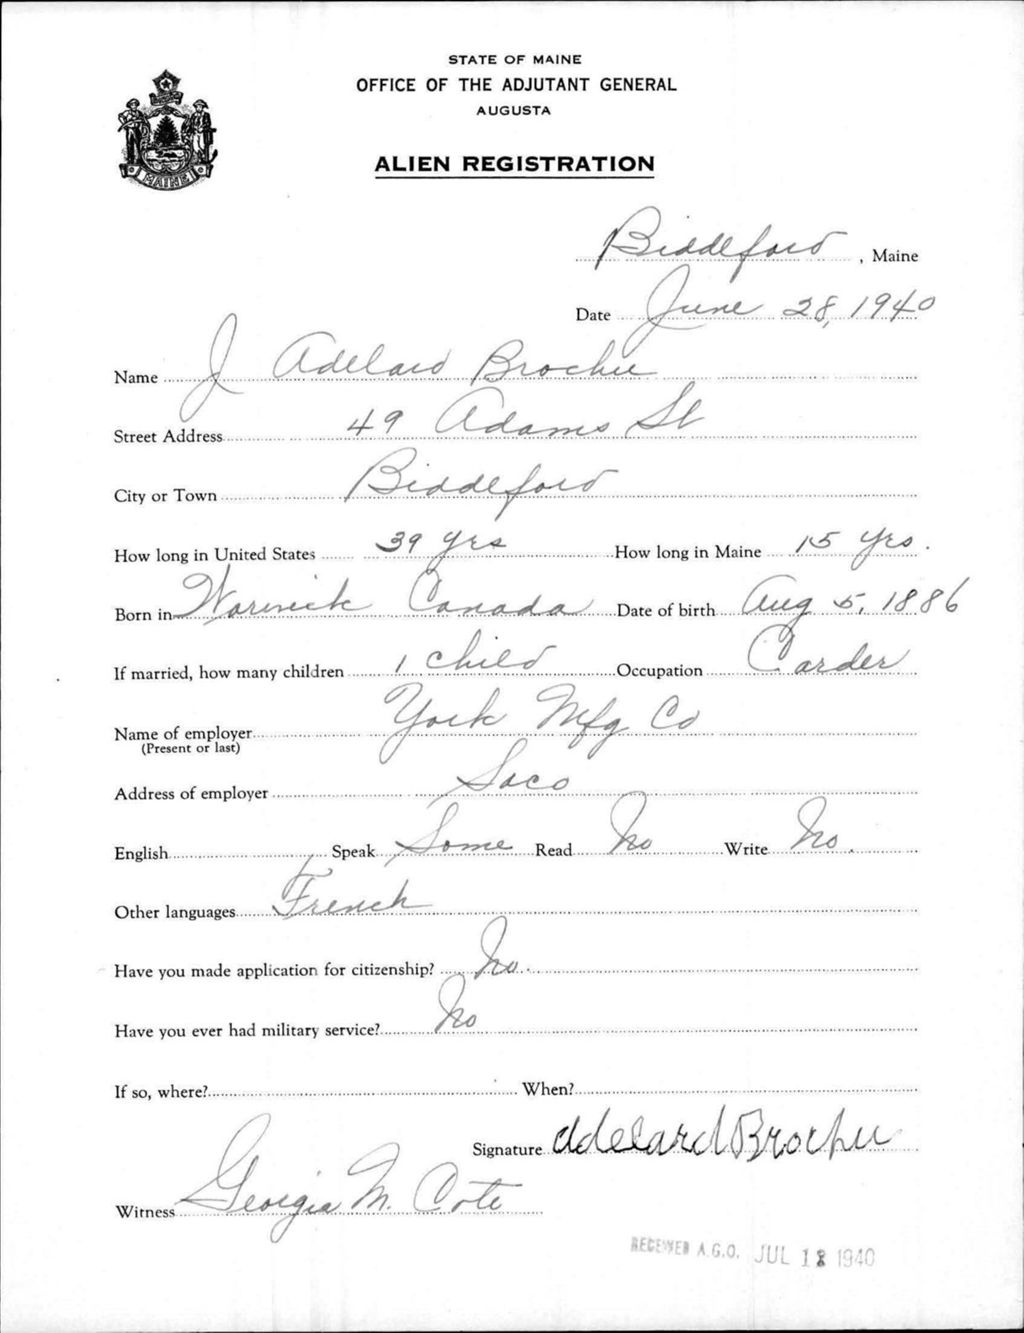 STATE OF MAINE
OFFICE OF THE ADJUTANT GENERAL
AUGUSTA
ALIEN REGISTRATION
MAINE
Biddeford, Maine
Date June 28, 1940
Name J Adelard Brochu
Street Address 49 Adams St
City or Town Biddeford
How long in United States 39 yrs How long in Maine 15 yrs.
Born in Warwick Canada Date of birth Aug 5, 1886
If married, how many children 1 child Occupation Carder
Name of employer York Mfg Co
(Present or last)
Address of employer Saco
English Speak Some Read No Write No.
Other languages French
Have you made application for citizenship? No.
Have you ever had military service? No
If so, where? When?
Signature Adelard Brochu
Witness Georgia M. Cote
RECEIVED A.G.O. JUL 1940